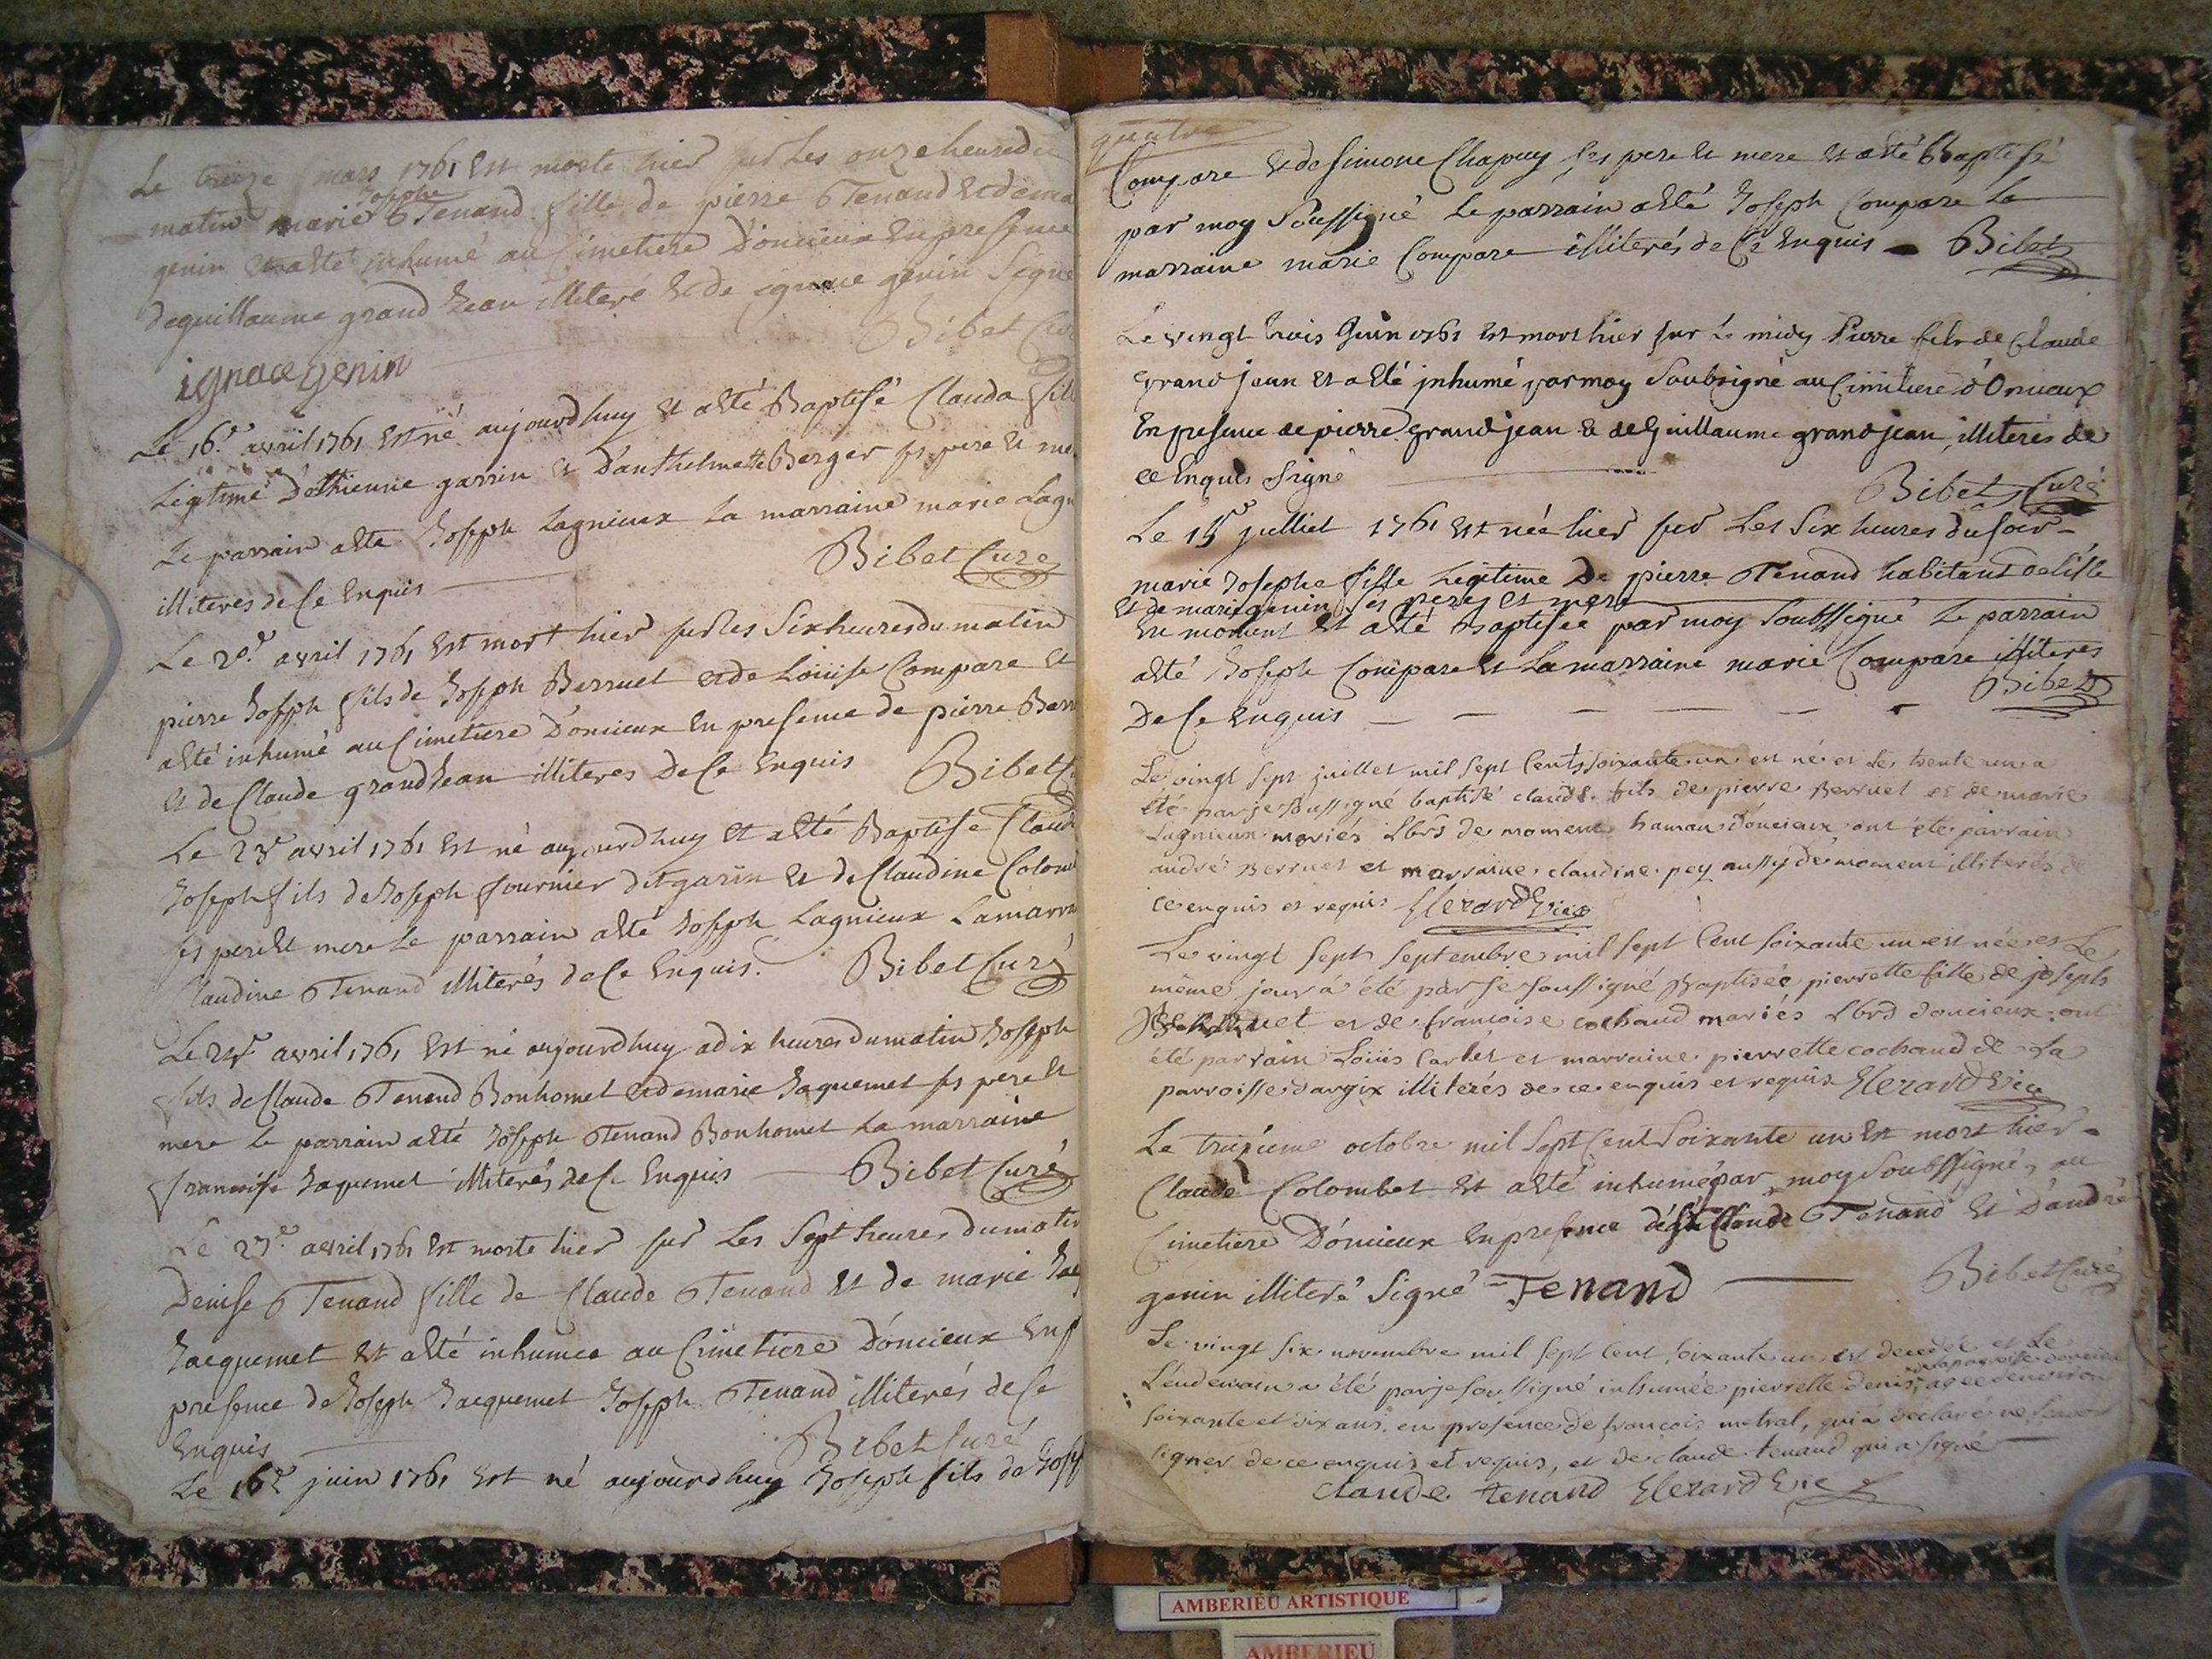 Le treize mars 1761 Est morte hier sur Les onze heures du
matin marie Josephe Tenand fille de pierre Tenand Et de ma
genin Et a eté inhumé au Cimetiere D'oncieux En presence
de guillaume grand Jean illiteré Et de ignace genin Signé
Bibet Curé
ignace genin
Le 16e avril 1761 Est né aujourdhuy Et a eté Baptisé Clauda fill
Legitime D'Ethienne garrin Et D'anthelmette Berger ses pere Et me
Le parrain a eté Joseph Lagnieux La marraine marie Lagn
illiteres de Ce Enquis
Bibet Curé
Le 20e avril 1761 Est mort hier sur les Six heures du matin
pierre Joseph fils de Joseph Berruet et de Louise Compare Et
a eté inhumé au Cimetiere D'oncieux En presence de pierre Berr
Et de Claude grand Jean illiteres De Ce Enquis Bibet C
Le 23e avril 1761 Est né aujourdhuy Et a eté Baptise Claude
Joseph fils de Joseph fournier dit garin Et de Claudine Colom
ses pere Et mere Le parrain a eté Joseph Lagnieux La marr
Claudine Tenand illiterés de Ce Enquis. Bibet Curé
Le avril 1761 Est né aujourdhuy a dix heures du matin Joseph
fils de Claude Tenand Bonhomet et de marie Jaquemet ses pere Et
mere Le parrain a eté Joseph Tenand Bonhomet La marraine
francoise Jaquemet illiterés de Ce Enquis Bibet Curé
Le 27e avril 1761 Est morte hier sur Les Sept heures du matin
Denise Tenand fille de Claude Tenand Et de marie Jac
Jacquemet Et a eté inhumee au Cimetiere D'oncieux En p
presence de Joseph Jacquemet Joseph Tenand illiterés de Ce
Enquis
Bibet Curé
Le 16e juin 1761 Est né aujourdhuy Joseph fils de Josep
quatre
Compare Et de Simone Chapuy ses pere Et mere Et a eté Baptisé
par moy Soussigné Le parrain a eté Joseph Compare La
marraine marie Compare illiterés de Ce Enquis Bibet
Le vingt trois Juin 1761 Est mort hier sur Le midy Pierre fils de Claude
grand jean Et a Eté inhumé par moy Soubsigné au Cimitiere d'Oncieux
En presence de pierre grand jean Et de Guillaume grand jean, illiterés de
ce Enquis Signé
Bibet Curé
Le 15e julliet 1761 Est née hier sur Les Six heures du soir
marie Josephe fille Legitime De pierre Tenand habitant
Et de marie genin ses peres et mere
En moment Et a eté Baptisée par moy Soubssigné Le parrain
a eté Joseph Compare Et La marraine marie Compare illiteres
De Ce Enquis Bibet
Le vingt sept juillet mil sept Cents soixante un est né et Le trente un a
été par je soussigné baptisé claude fils de pierre Berruet et de marie
Lagnieux mariés Lbrs de moment hamau d'oncieux ont été parrain
andré Berruet et marraine claudine pey aussy de moment illiterés de
ce enquis et requis Elerard Vic
Le vingt sept septembre mil sept Cent soixante un est née et Le
même jour a été par je soussigné Baptisée pierrette fille de joseph
Berruet et de francoise cochaud mariés Lbrs doncieux ont
été parrain Louis Carlet et marraine pierrette cochaud de La
parroisse dargix illiterés de ce enquis et requis Elerard Vic
Le treizieme octobre mil Sept Cent Soixante un Est mort hier
Claude Colombet Et a eté inhumé par moy Soubssigné au
Cimetiere D'oncieux En presence de Claude Tenand Et D'andré
genin illiteré Signé Tenand Bibet Curé
Le vingt six novembre mil sept Cent soixante un est decedée et Le
Lendemain a été par je soussigné inhumée pierrette denis, de la paroisse doncieux agée denviron
soixante et dix ans en presence de francois metral, qui a déclaré ne scavoir
signer de ce enquis et requis, et de claude tenand qui a signé
claude tenand Elerard Vic
AMBERIEU ARTISTIQUE
AMBERIEU